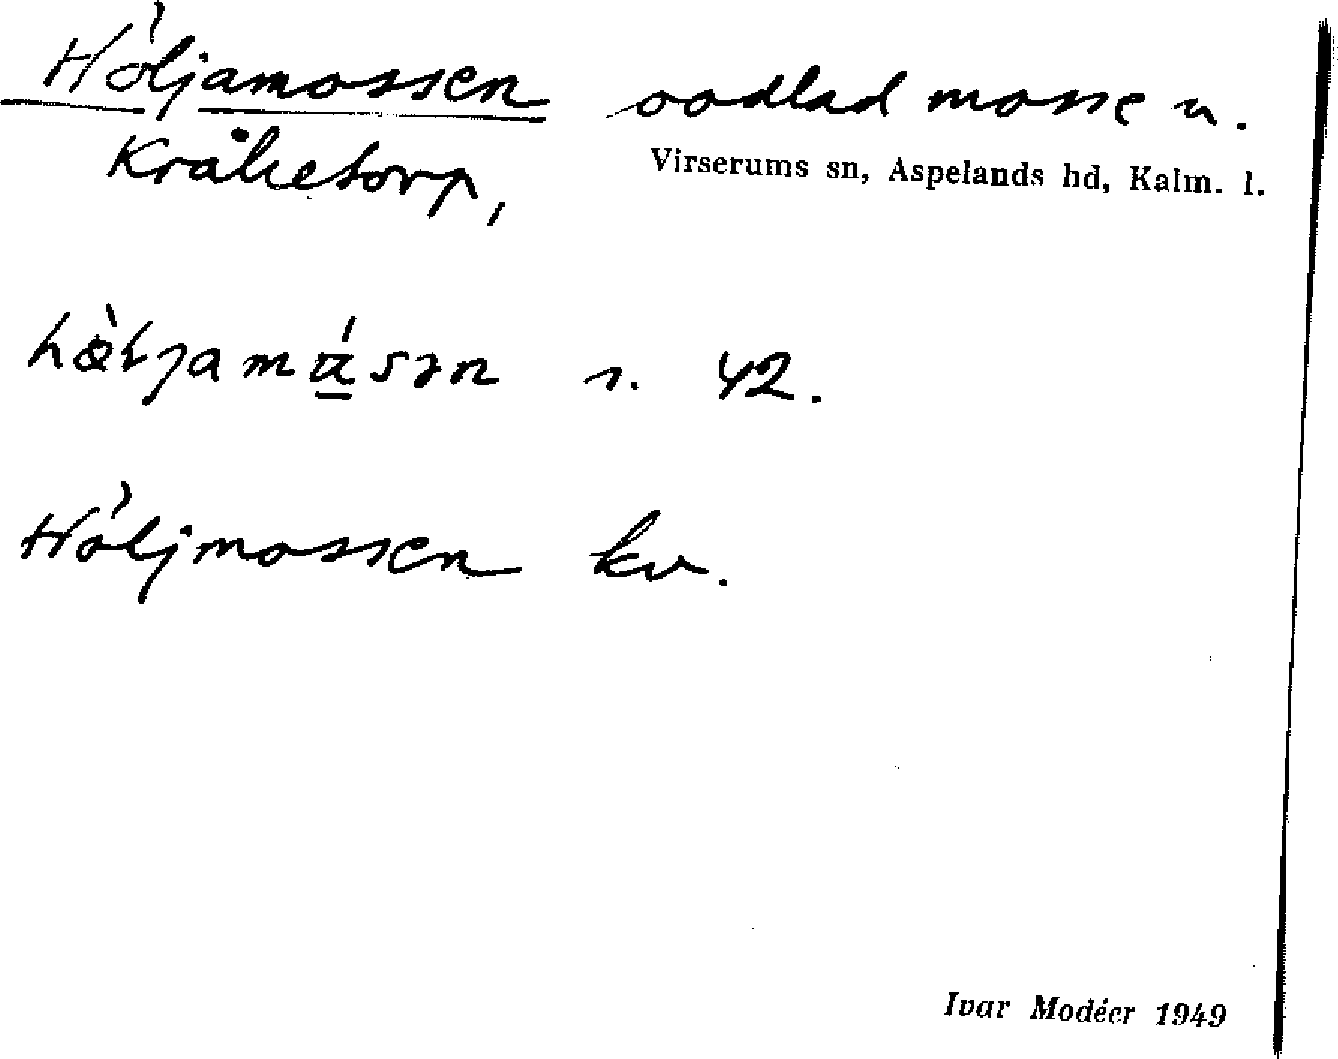 Höljamossen oodlad mosse u.
Kråketorp, Virserums sn, Aspelands hd, Kalm. l.
s. 42.
Höljmossen kv.
Ivar Modéer 1949